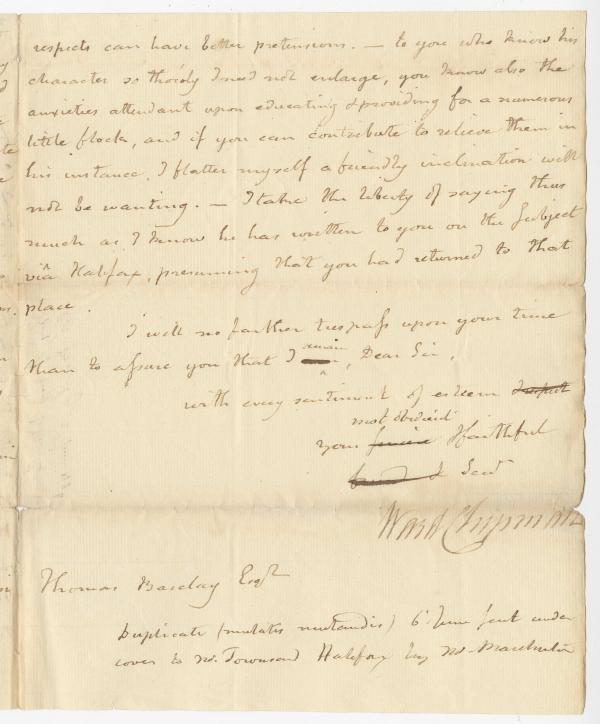 respects can have better pretensions. — to you who know his
character so thoroly I need not enlarge, you know also the
anxieties attendant upon educating & providing for a numerous
little flock, and if you can contribute to relieve them in
his instance, I flatter myself a friendly inclination will
not be wanting. — I take the liberty of saying thus
much as I know he has written to you on the subject
viâ Halifax, presuming that you had returned to that
place.
I will no farther trespass upon your time
than to assure you that I remain, Dear Sir,
with every sentiment of esteem & respect
most obedient
your & faithful
& Servt
Ward Chipman
Thomas Barclay Esqr
Duplicate (mutatis mutandis) 6 June sent under
cover to Mr. Townsend Halifax by Mr.